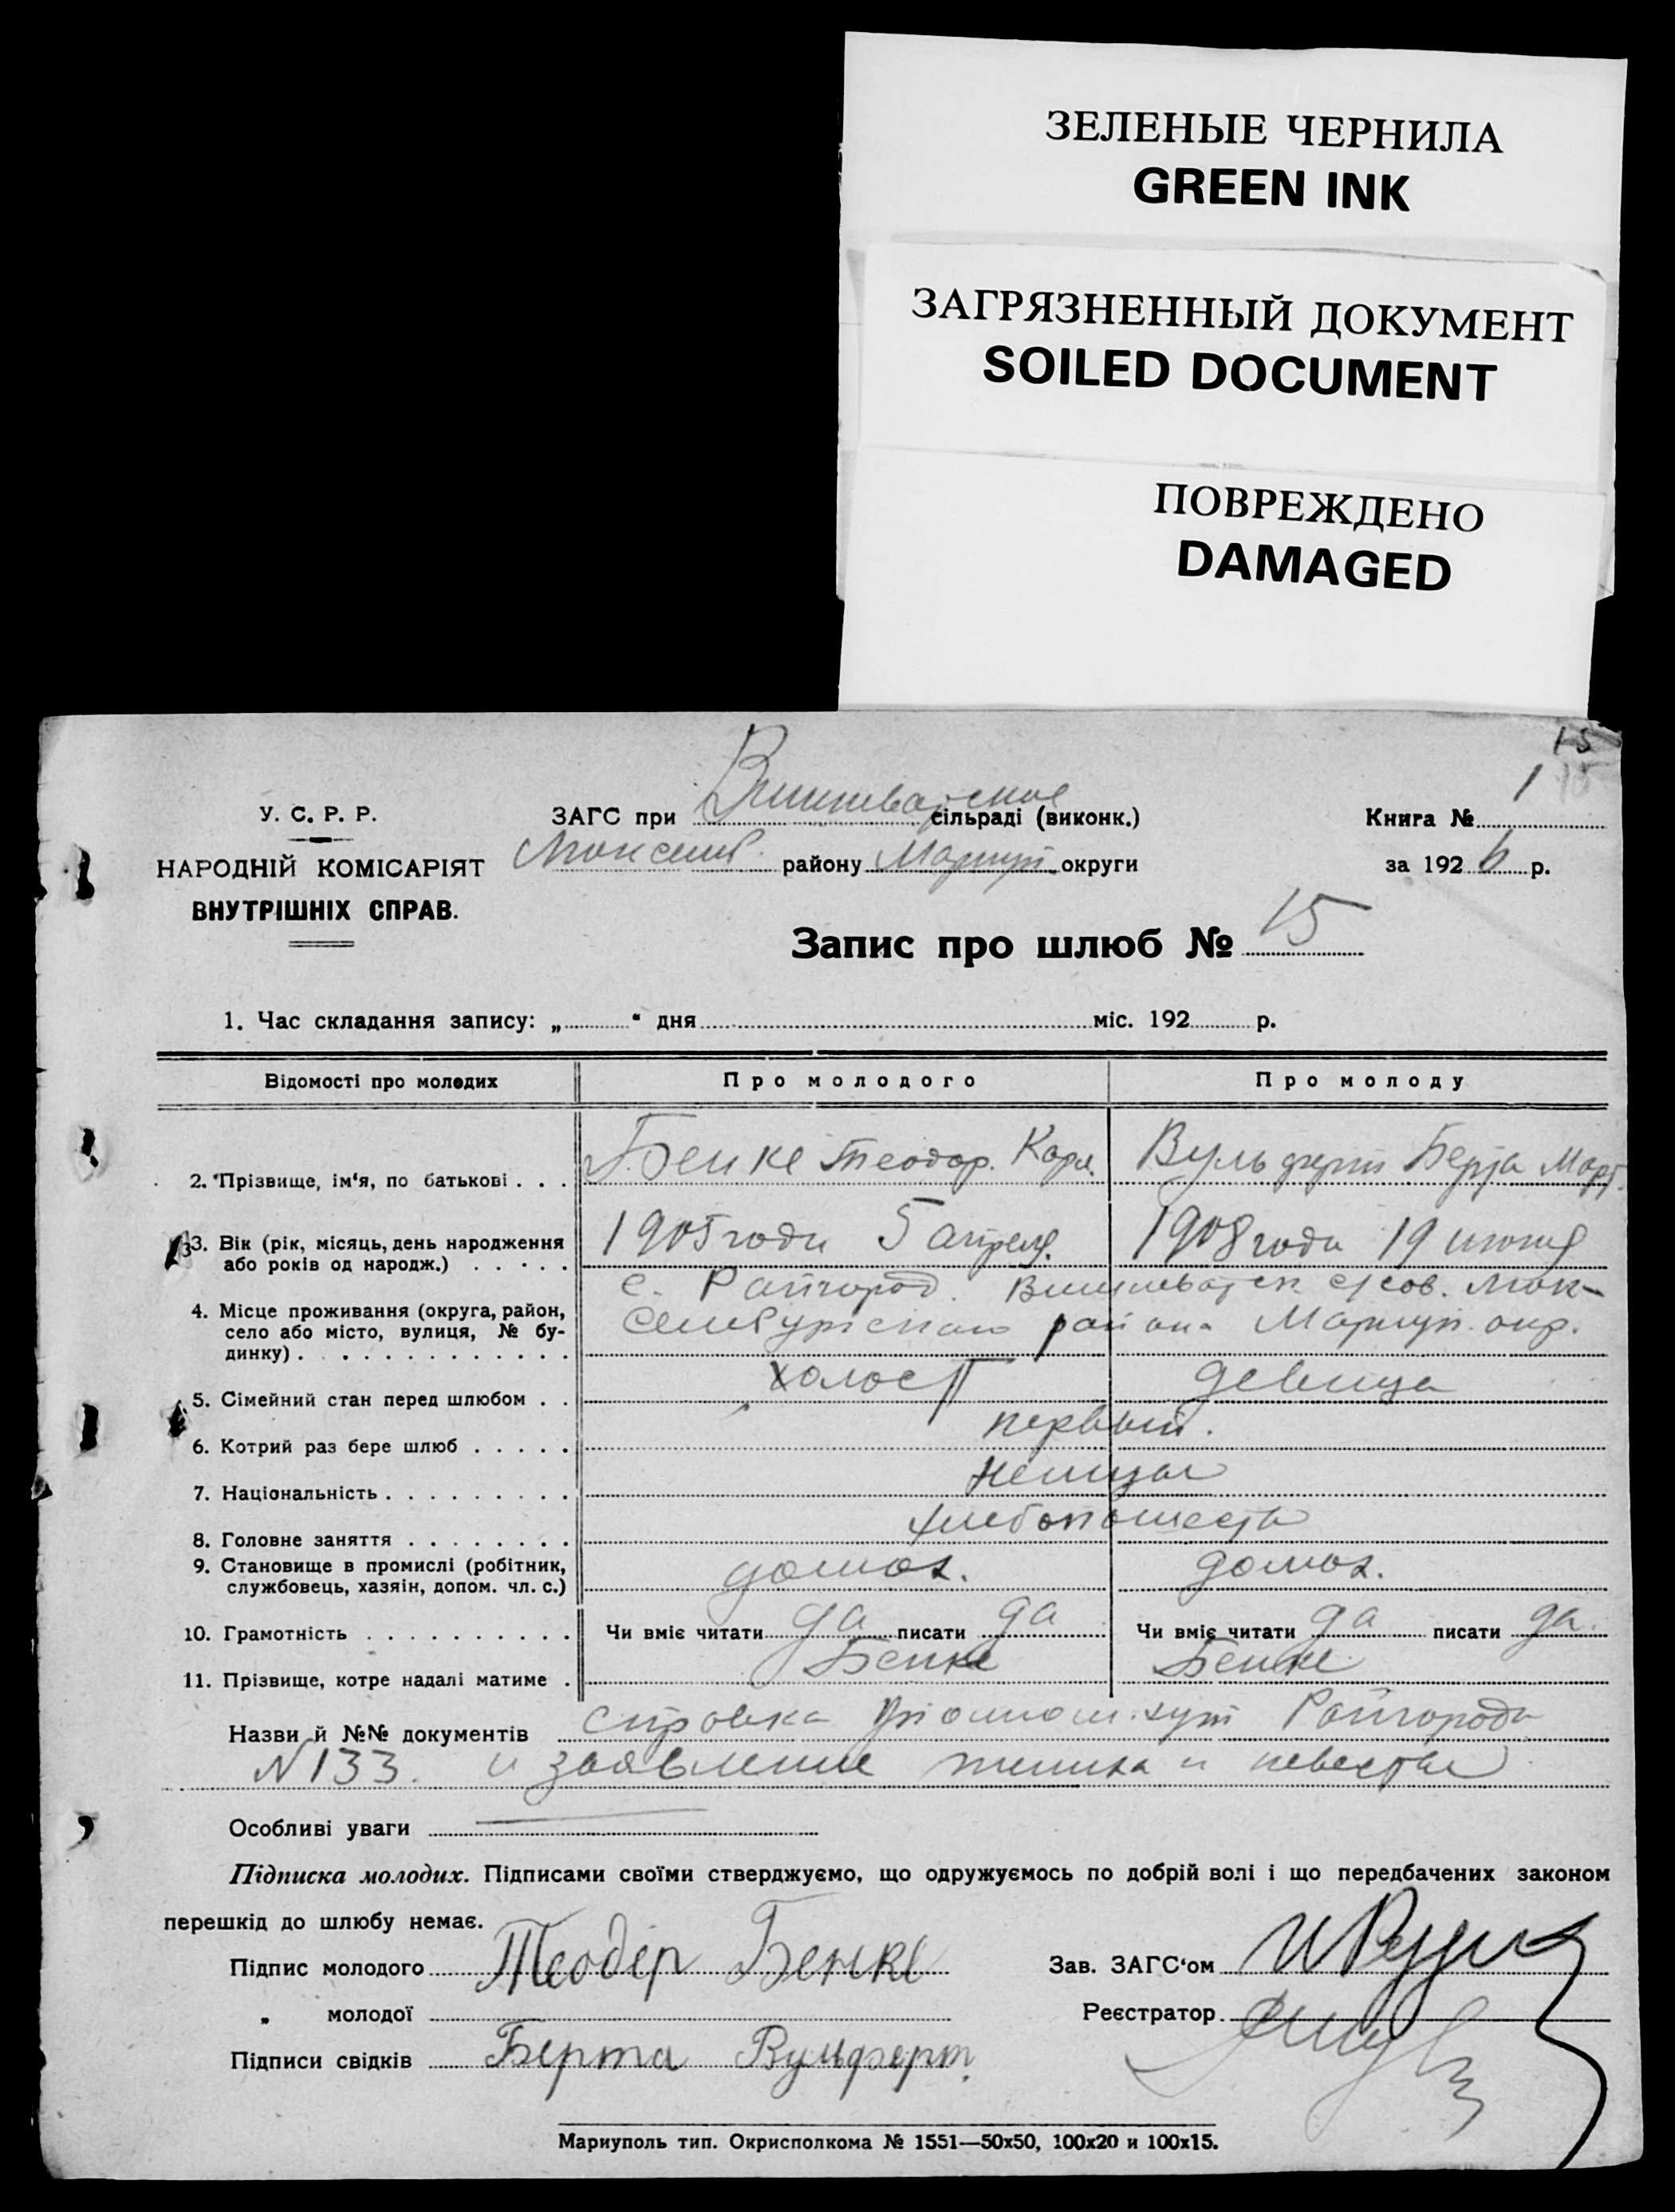 ЗЕЛЕНЫЕ ЧЕРНИЛА
GREEN INK
ЗАГРЯЗНЕННЫЙ ДОКУМЕНТ
SOILED DOCUMENT
ПОВРЕЖДЕНО
DAMAGED
15
У. С. Р. Р.
НАРОДНІЙ КОМІСАРІЯТ
ВНУТРІШНІХ СПРАВ.
ЗАГС при сільраді (виконк.)
району Мариуп. округи
Книга № 1
за 1926 р.
Запис про шлюб № 15
1. Час складання запису: „ “ дня міс. 192 р.
Відомості про молодих Про молодого Про молоду
2. Прізвище, ім‘я, по батькові . . . Бенке Теодор. Карл. Вульферт Берта Март.
3. Вік (рік, місяць, день народження
або років од народж.) . . . . . 1905 года 5 апреля. 1908 года 19 июня
4. Місце проживання (округа, район,
село або місто, вулиця, № бу-
динку) . . . . . . . . . . . . .
с. Райгород. с/сов. Люк-
сембургского района Мариуп. окр.
5. Сімейний стан перед шлюбом . . холост девица
6. Котрий раз бере шлюб . . . . . первый.
7. Національність . . . . . . . . . немцы
8. Головне заняття . . . . . . . . хлебопашество
9. Становище в промислі (робітник,
службовець, хазяін, допом. чл. с.) домох. домох.
10. Грамотність . . . . . . . . . . Чи вміє читати да писати да Чи вміє читати да писати да.
11. Прізвище, котре надалі матиме . Бенке Бенке
Назви й №№ документів справка уполномоч. хут Райгорода
N 133. и заявление жениха и невесты
Особливі уваги
Підписка молодих. Підписами своїми стверджуємо, що одружуємось по добрій волі і що передбачених законом
перешкід до шлюбу немає.
Підпис молодого Теодор Бенке
Зав. ЗАГС‘ом
„ молодої
Реєстратор
Підписи свідків Берта Вульферт.
Мариуполь тип. Окрисполкома № 1551—50х50, 100х20 и 100х15.